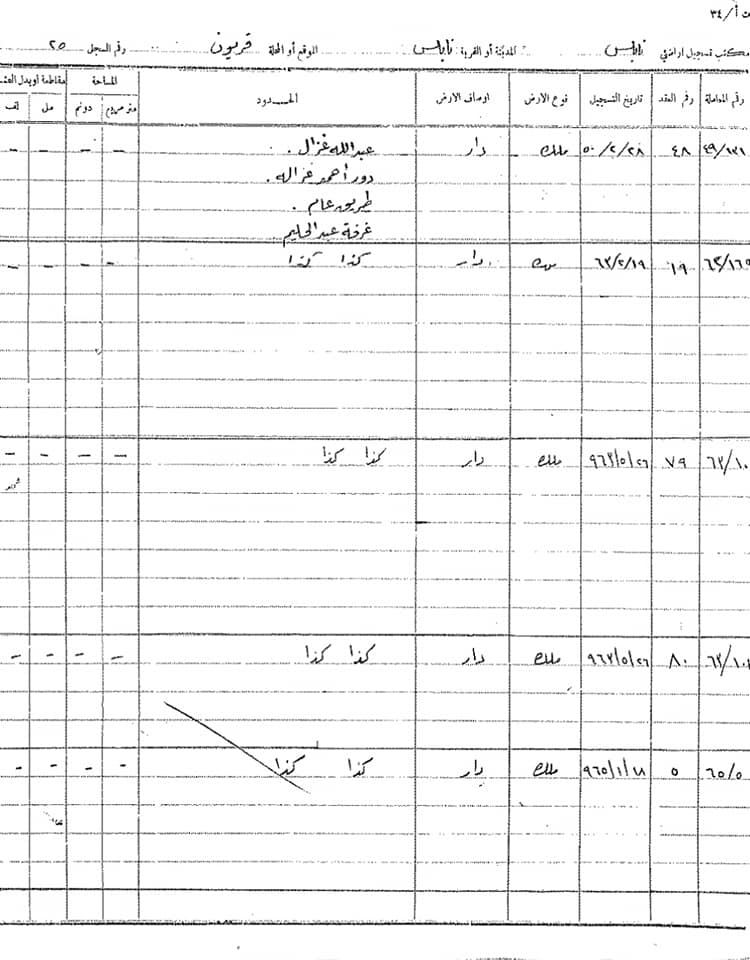 أ/٣٤
مكتب تسجيل اراضي نابلس المدينة أو القرية نابلس الموقع أو المحلة قريون رقم السجل ٢٥
رقم المعاملة رقم العقد تاريخ التسجيل نوع الارض اوصاف الارض الحدود المساحة
دونم متر مربع مل
٤٩/١٣١ ٤٨ ٥٠/٢/٢٨ ملك دار عبدالله غزال . — — — —
دور أحمد غزاله .
طريق عام .
غرفة عبد الحليم
٦٣/١٦٥ ١٩ ٦٣/٢/١٩ ملك دار كذا كذا — — — —
٦٣/١٠ ٧٩ ٩٦٣/٥/٢٦ ملك دار كذا كذا — — — —
٨٠ ٩٦٣/٥/٢٦ ملك دار كذا كذا — — — —
٦٥/٥ ٥ ٩٦٥/١/١٨ ملك دار كذا كذا — — — —